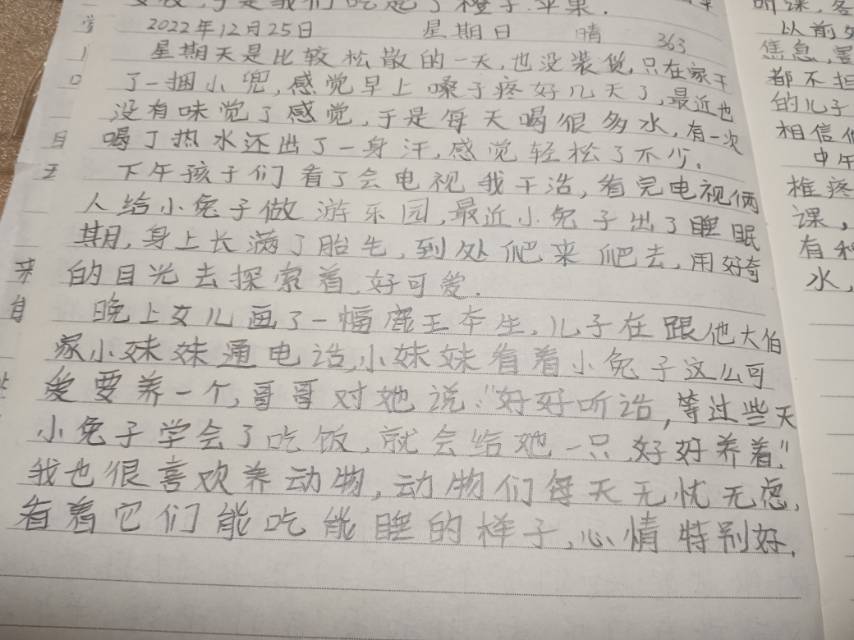 于是我们吃起了橙子.苹果.
2022年12月25日 星期日 晴 363
星期天是比较松散的一天,也没装货,只在家干
了一捆小兜,感觉早上嗓子疼好几天了,最近也
没有味觉了感觉,于是每天喝很多水,有一次
喝了热水还出了一身汗,感觉轻松了不少.
下午孩子们看了会电视我干活,看完电视俩
人给小兔子做游乐园,最近小兔子出了睡眠
期,身上长满了胎毛,到处爬来爬去,用好奇
的目光去探索着,好可爱.
晚上女儿画了一幅鹿王本生,儿子在跟他大伯
家小妹妹通电话,小妹妹看着小兔子这么可
爱要养一个,哥哥对她说:"好好听话,等过些天
小兔子学会了吃饭,就会给她一只,好好养着."
我也很喜欢养动物,动物们每天无忧无虑,
看着它们能吃能睡的样子,心情特别好.
听课,
以前
焦急,
都不担
的儿子
相信他
中午
椎疼
课,
有种
水,